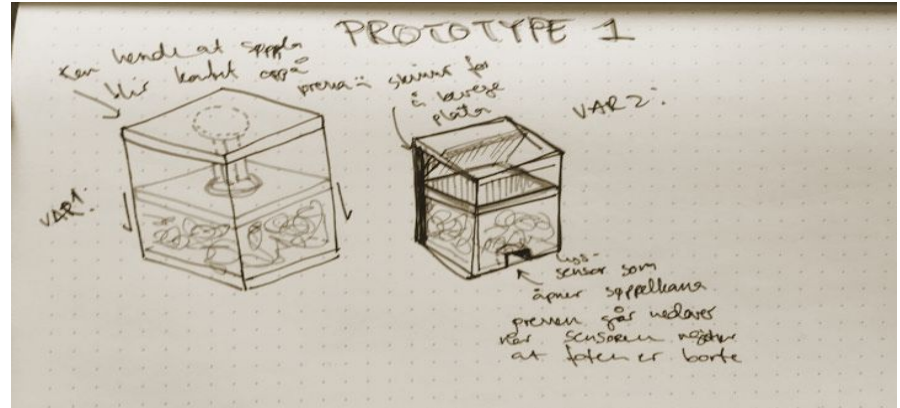 PROTOTYPE 1
Kan hende at søppla
blir kastet oppå
pressa
VAR 1:
skinner for
å bevege
plata
VAR 2:
lys-
sensor som
åpner søppelkana
pressen går nedover
når sensoren
at foten er borte